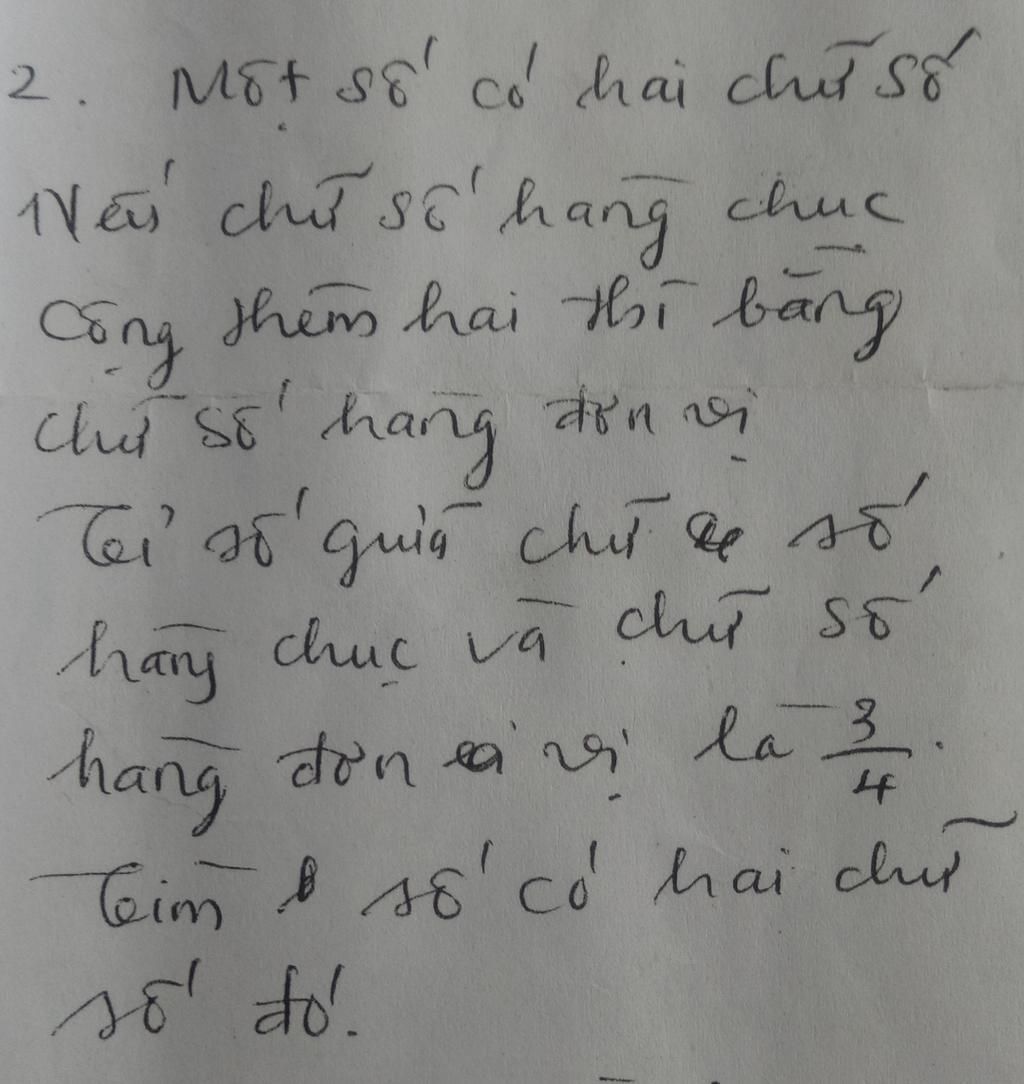 2. Một số có hai chữ số
Nếu chữ số hàng chục
cộng thêm hai thì bằng
chữ số hàng đơn vị
Tỉ số giữa chữ số
hàng chục và chữ số
hàng đơn vị là 3/4.
Tìm số có hai chữ
số đó.